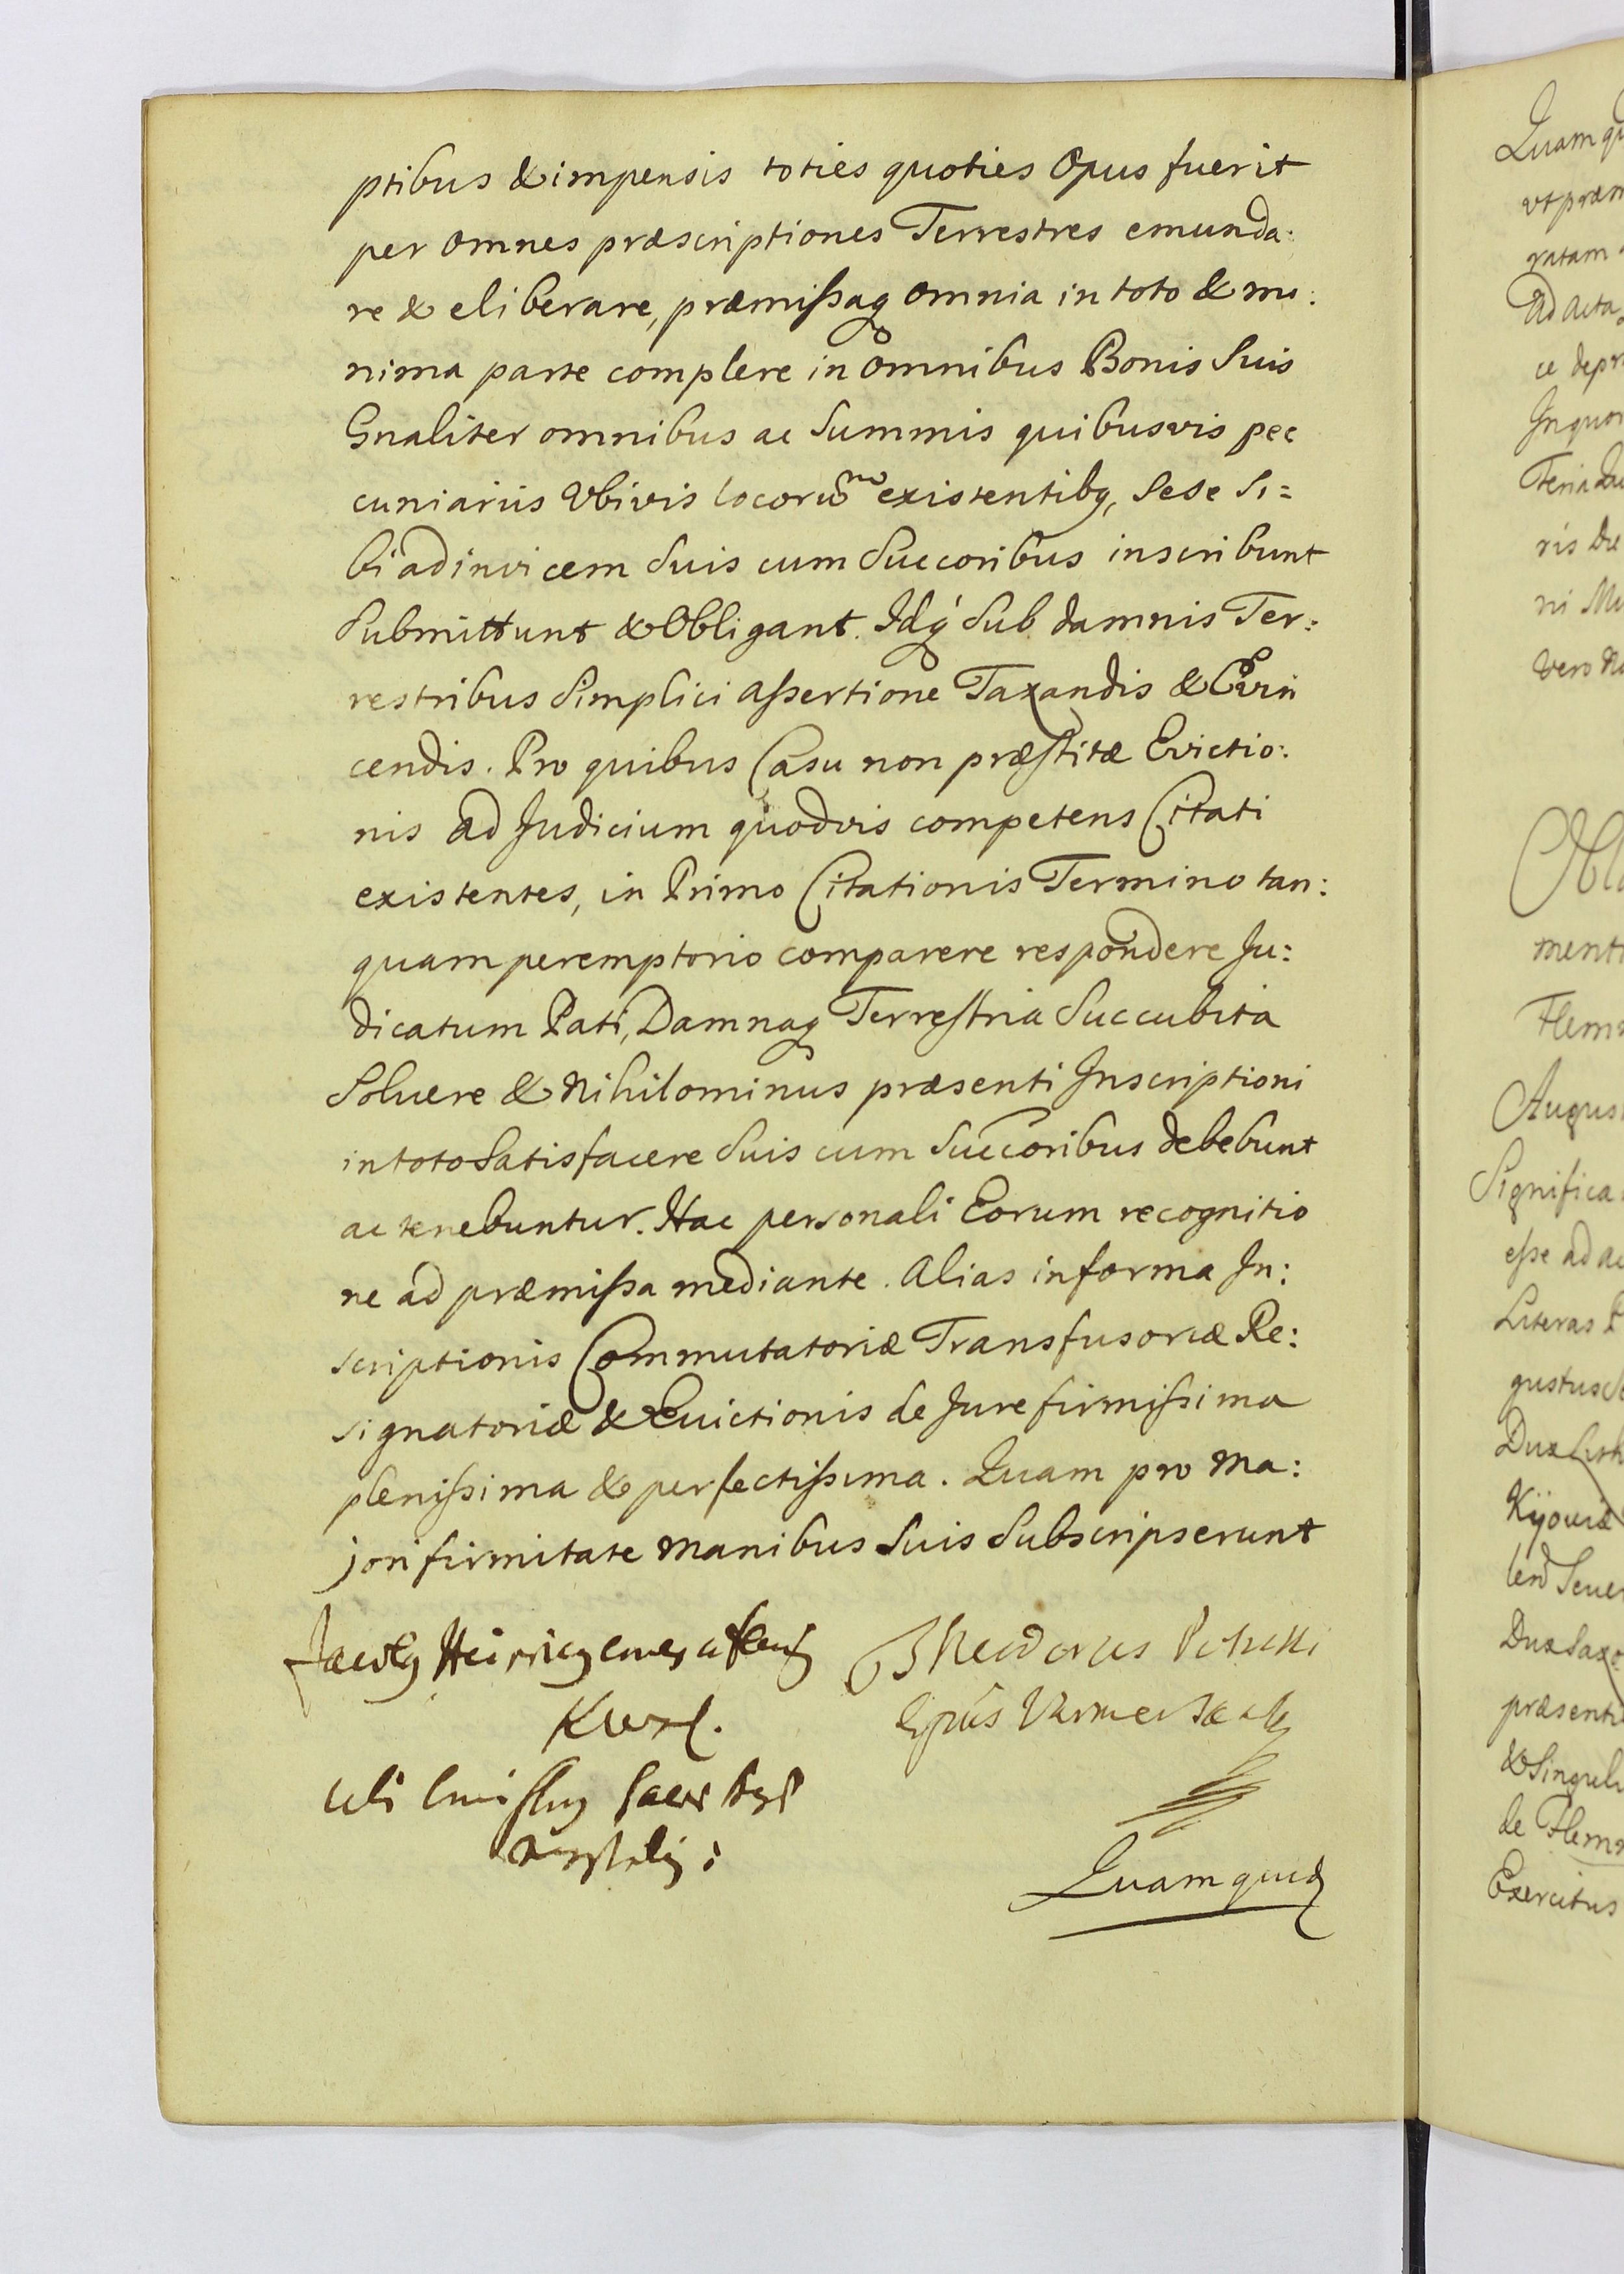 ptibus & impensis toties quoties Opus fuerit
per omnes præscriptiones Terrestres emunda:
re & eliberare, præmissaq omnia in toto & mi:
nima parte complere in omnibus Bonis Suis
Gnaliter omnibus ac Summis quibusvis pec
cuniariis Vbivis locorū existentibq, Sese Si=
bi adinvicem Suis cum Succoribus inscribunt
Submittunt & Obligant. Idq Sub damnis Ter:
restribus Simplici assertione Taxandis & Evin
cendis. Pro quibus Casu non præstitæ Evictio:
nis ad Judicium quodvis competens Citati
existentes, in Primo Citationis Termino tan:
quam peremptorio comparere respondere Ju:
dicatum Pati, Damnaq Terrestria Succubita
Soluere & Nihilominus præsenti Inscriptioni
in toto Satisfacere Suis cum Succoribus debebunt
ac tenebuntur. Hac personali Eorum recognitio
ne ad præmissa mediante. Alias in forma In:
scriptionis Commutatoriæ Transfusoriæ Re:
signatoriæ & Euictionis de Jure firmissima
plenissima & perfectissima. Quam pro Ma:
jori firmitate Manibus Suis Subscripserunt
Theodorus Potocki
Epūs
Quam quid
Quam
ratam
Ad Acta
ris
ni
vero
Flem
August
Significa
esse ad
Literas
gustus
Dux
Kijoviæ
Dux Saxo
præsenti
& Singuli
de Flem
Exercitus